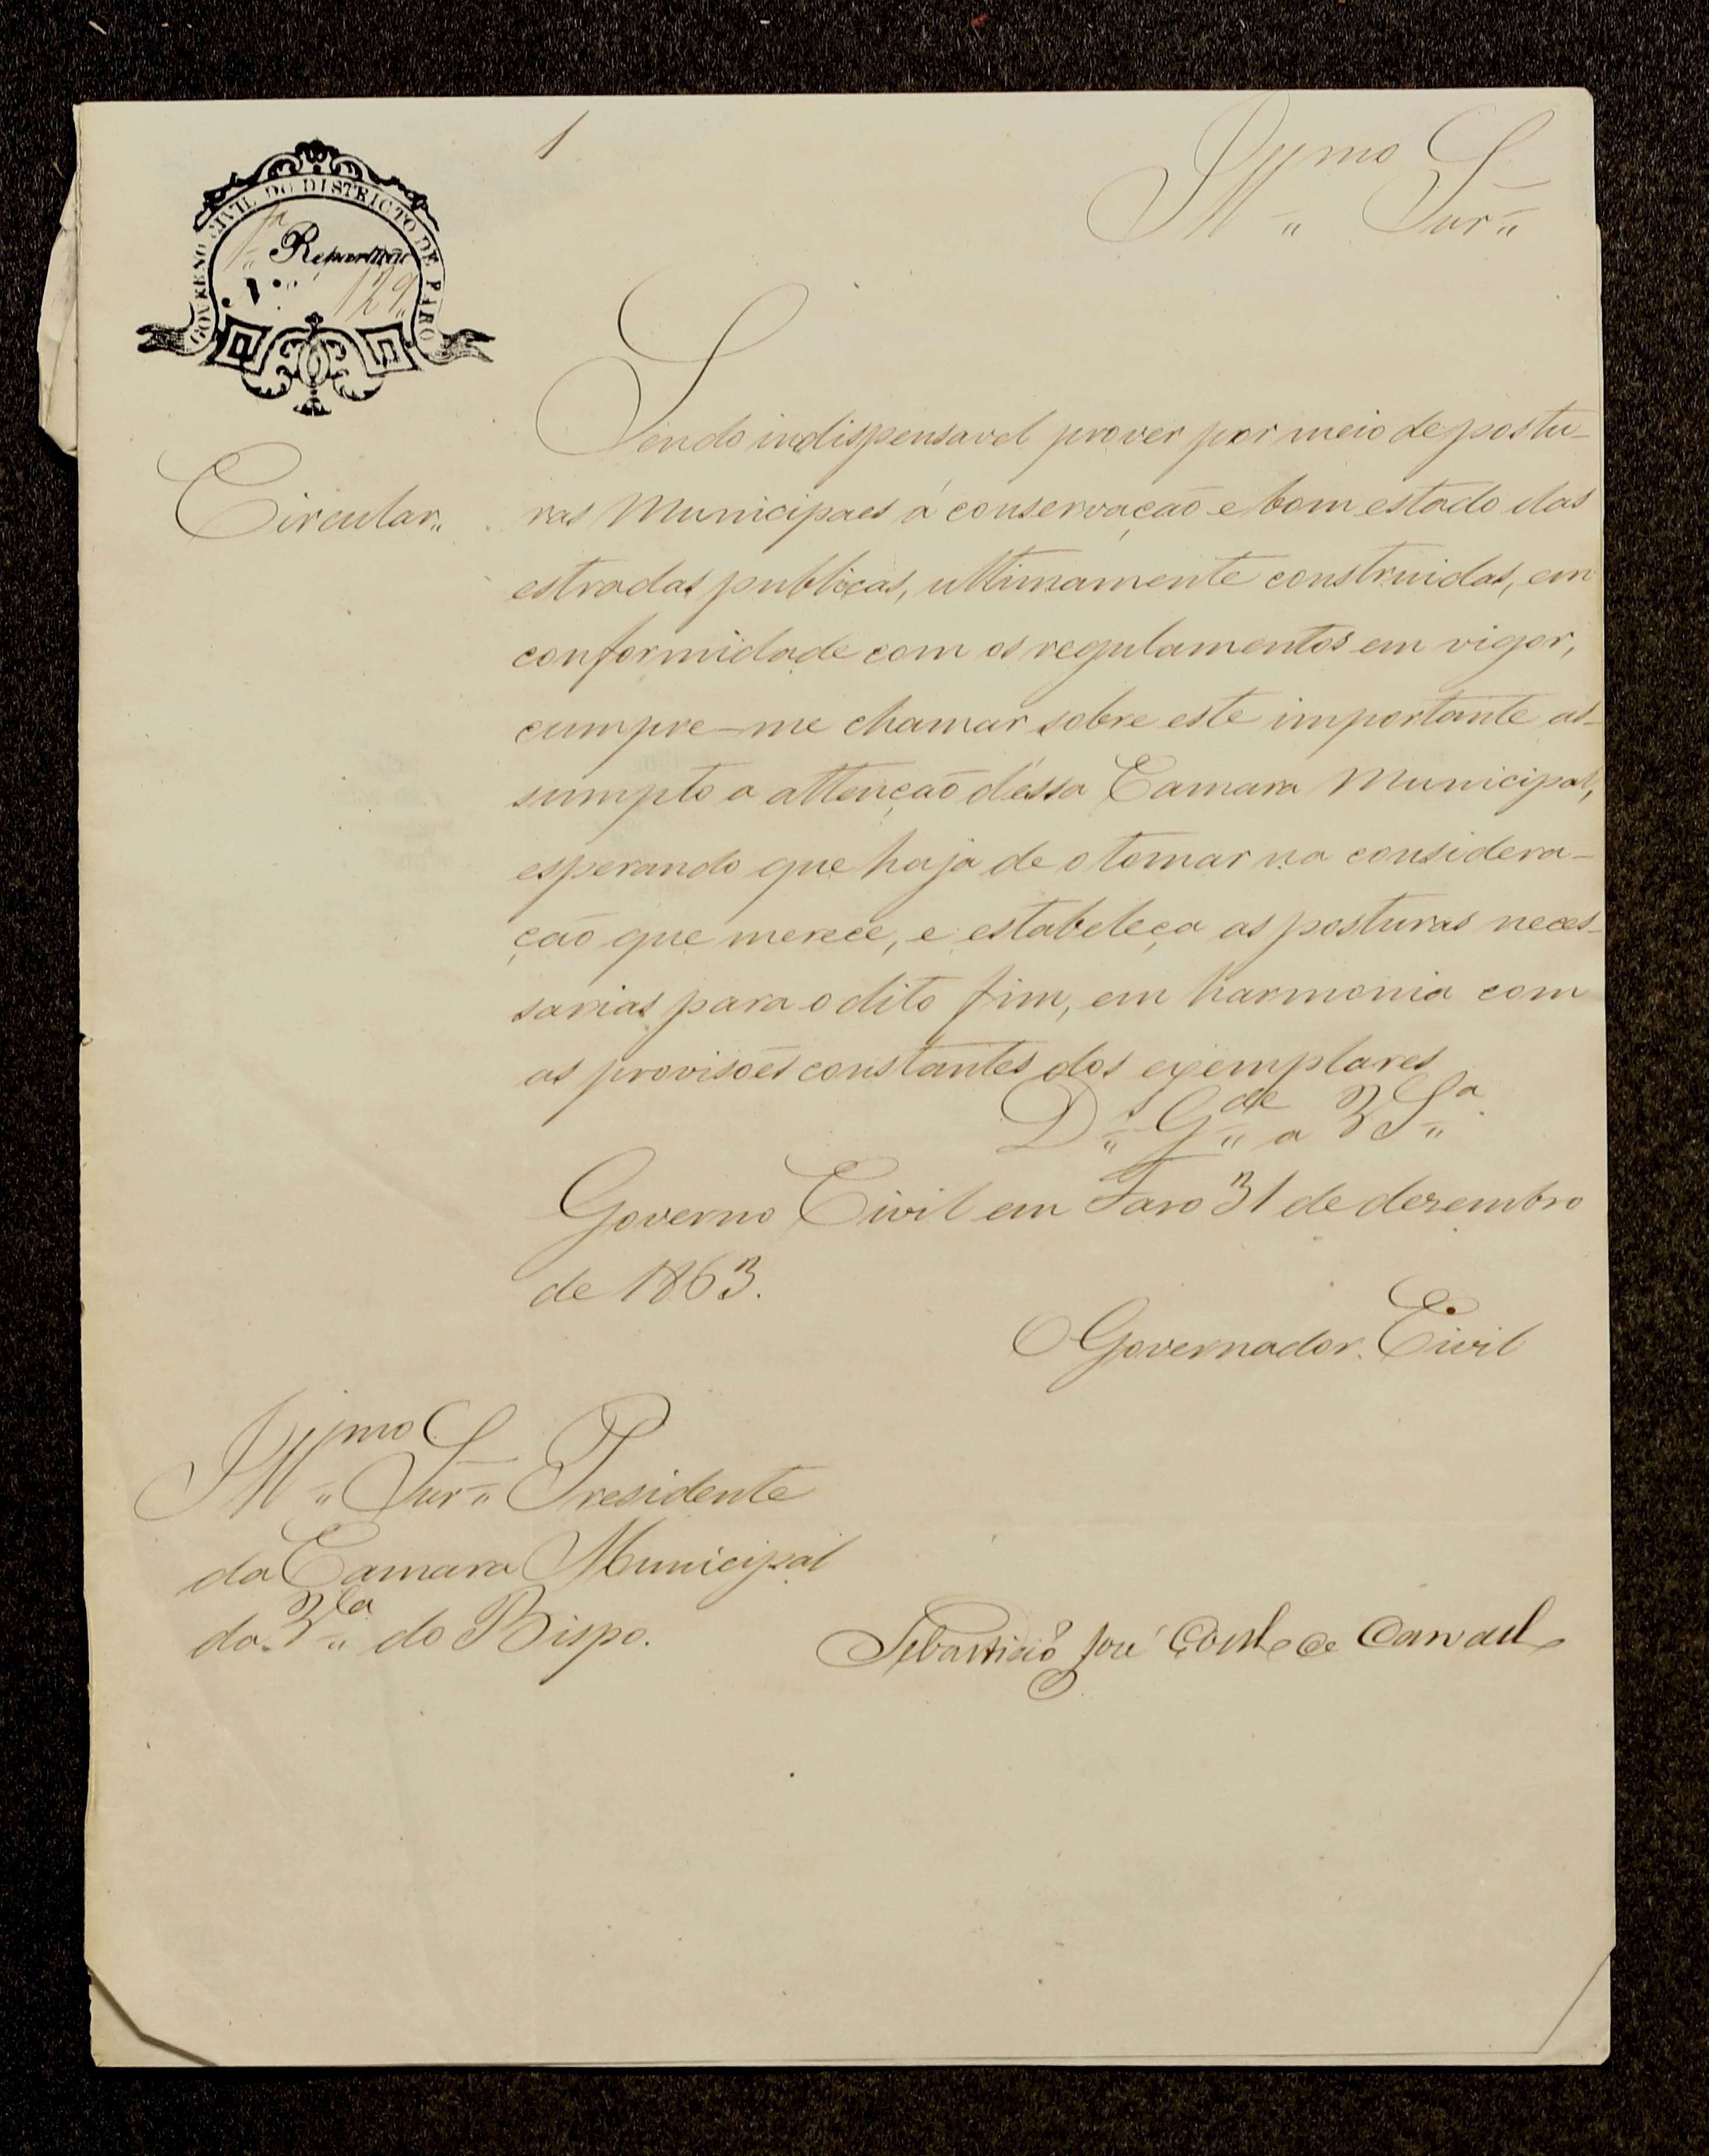 1
Illmo Snr
GOVERNO CIVIL DO DISTRICTO DE FARO
1a Repartição
N.o 129
Circular
Sendo indispensavel prover por meio de postu-
ras Municipaes á conservação e bom estado das
estradas publicas, ultimamente construidas, em
conformidade com os regulamentos em vigor,
cumpre-me chamar sobre este importante as-
sumpto a attenção d'éssa Camara Municipal,
esperando que haja de o tomar na considera-
ção que merece, e estabeleça as posturas neces-
sarias para o dito fim, em harmonia com
as provisões constantes dos exemplares
Ds Gde a VSa
Governo Civil em Faro 31 de dezembro
de 1863.
O Governador Civil
Illmo Snr Presidente
da Camara Municipal
da Vla do Bispo.
Sebastião José Coelho de Carvalho